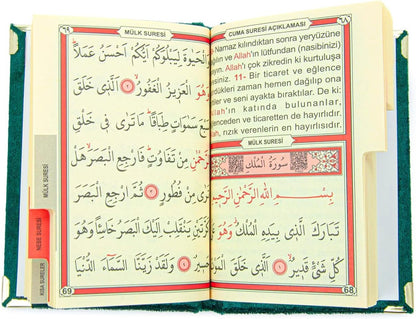 CUMA SURESİ AÇIKLAMASI ٦٨
Namaz kılındıktan sonra yeryüzüne
ğılın ve Allah'ın lütfundan (nasibinizi)
yın. Allah'ı çok zikredin ki kurtuluşa
siniz. 11- Bir ticaret ve eğlence
dikleri zaman hemen dağılıp ona
ler ve seni ayakta bıraktılar. De ki:
lah'ın katında bulunanlar,
enceden ve ticaretten de hayırlıdır.
lah, rızık verenlerin en hayırlısıdır.
MÜLK SURESİ
سُورَةُ الْمُلْكِ
بِسْمِ اللهِ الرَّحْمٰنِ الرَّحِيمِ
تَبَارَكَ الَّذِى بِيَدِهِ الْمُلْكُ وَهُوَ
كُلِّ شَىْءٍ قَدِيرٌ ١ الَّذِى خَلَقَ الْمَوْ
68
٦٩ MÜLK SURESİ
وَالْحَيٰوةَ لِيَبْلُوَكُمْ اَيُّكُمْ اَحْسَنُ عَمَلًا
وَهُوَ الْعَزِيزُ الْغَفُورُ ٢ الَّذِى خَلَقَ
سَبْعَ سَمٰوَاتٍ طِبَاقًا مَا تَرٰى فِى خَلْقِ
الرَّحْمٰنِ مِنْ تَفَاوُتٍ فَارْجِعِ الْبَصَرَ هَلْ
تَرٰى مِنْ فُطُورٍ ٣ ثُمَّ ارْجِعِ الْبَصَرَ
كَرَّتَيْنِ يَنْقَلِبْ اِلَيْكَ الْبَصَرُ خَاسِئًا وَهُوَ
حَسِيرٌ ٤ وَلَقَدْ زَيَّنَّا السَّمَاءَ الدُّنْيَا
69
MÜLK SURESİ
NEBE SURESİ
KISA SURELER